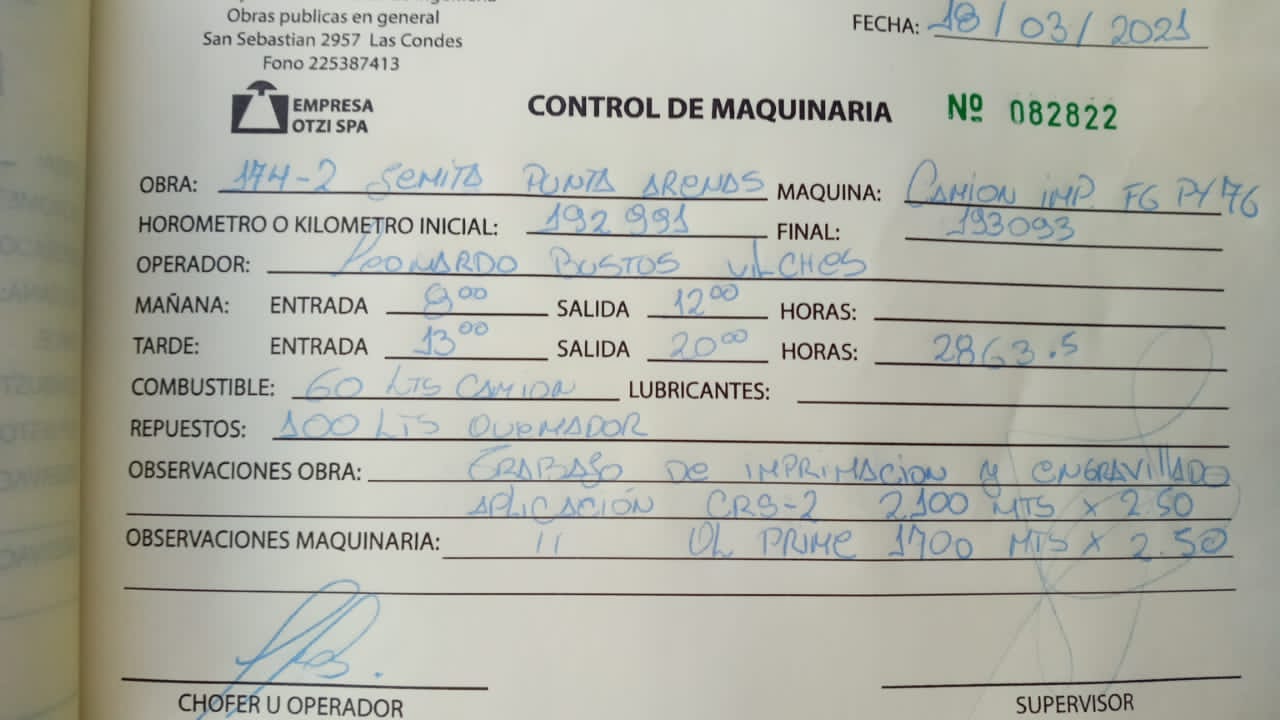 Obras publicas en general
San Sebastian 2957 Las Condes
Fono 225387413
FECHA: 18/03/2021
EMPRESA
OTZI SPA
CONTROL DE MAQUINARIA Nº 082822
OBRA: 174-2 SEMITA PUNTA ARENAS MAQUINA: CAMION IMP. FG PY 76
HOROMETRO O KILOMETRO INICIAL: 192991 FINAL: 193093
OPERADOR: LEONARDO BUSTOS VILCHES
MAÑANA: ENTRADA 8:00 SALIDA 12:00 HORAS:
TARDE: ENTRADA 13:00 SALIDA 20:00 HORAS: 2863.5
COMBUSTIBLE: 60 LTS CAMION LUBRICANTES:
REPUESTOS: 100 LTS QUEMADOR
OBSERVACIONES OBRA: TRABAJO DE IMPRIMACION Y ENGRAVILLADO
APLICACIÓN CRS-2 2.100 MTS X 2.50
OBSERVACIONES MAQUINARIA: 11 PRIME 1700 MTS X 2.50
CHOFER U OPERADOR
SUPERVISOR